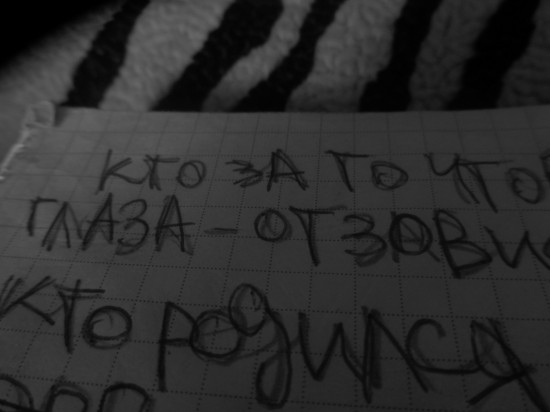 КТО ЗА ТО ЧТО
ГЛАЗА - ОТЗОВИ
КТО РОДИЛСЯ